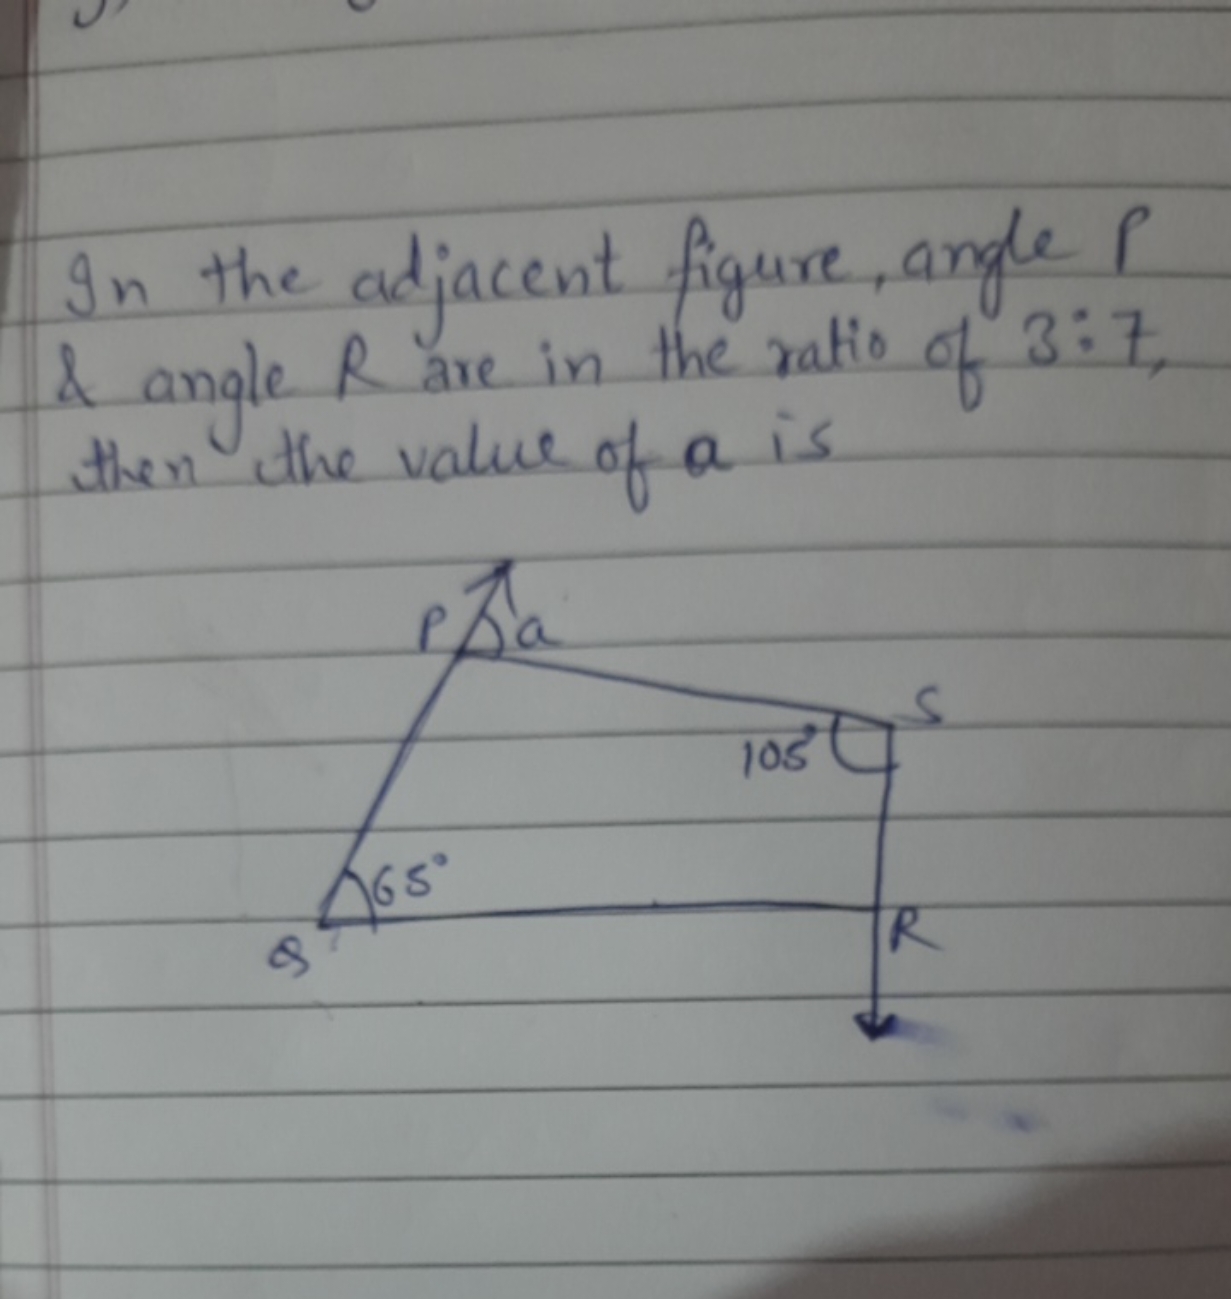 In the adjacent figure, angle P
& angle R are in the ratio of 3:7,
then the value of a is
P a
S
105°
65°
Q
R